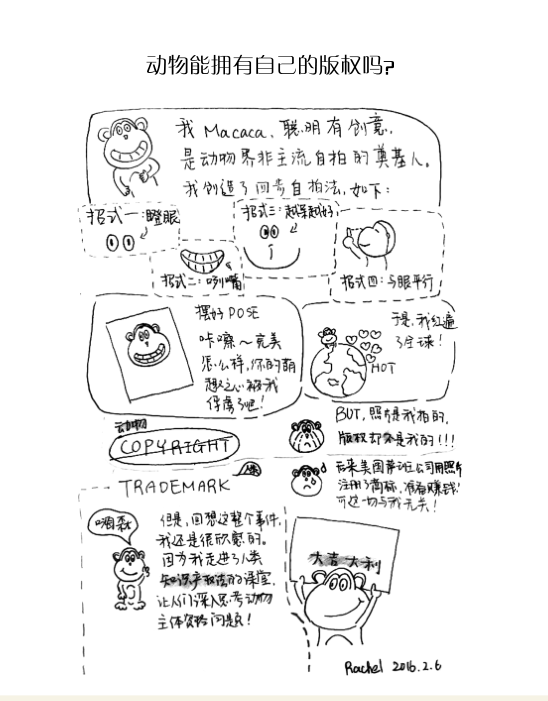 动物能拥有自己的版权吗?
我 Macaca, 聪明有创意,
是动物界非主流自拍的奠基人。
我创造了四步自拍法, 如下:
招式一: 瞪眼
招式二: 咧嘴
招式三: 越呆越好
招式四: 与眼平行
摆好 POSE
咔嚓~完美
怎么样, 你的萌
想之心被我
俘虏了吧!
于是, 我红遍
了全球!
HOT
动物
COPYRIGHT
BUT, 照片是我拍的,
版权却不是我的!!!
TRADEMARK
后来美国某班公司用照片
注册了商标, 准备赚钱!
可这一切与我无关!
嗨森
但是, 回想这整个事件,
我还是很欣慰的。
因为我走进了人类
知识产权法的课堂,
让人们深入思考动物
主体资格问题!
大吉大利
Rachel 2016.2.6